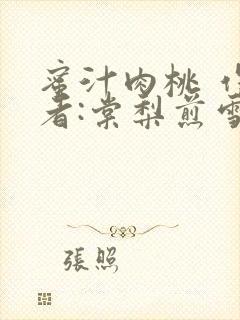 蜜汁肉桃 作
者:棠梨煎雪
張照